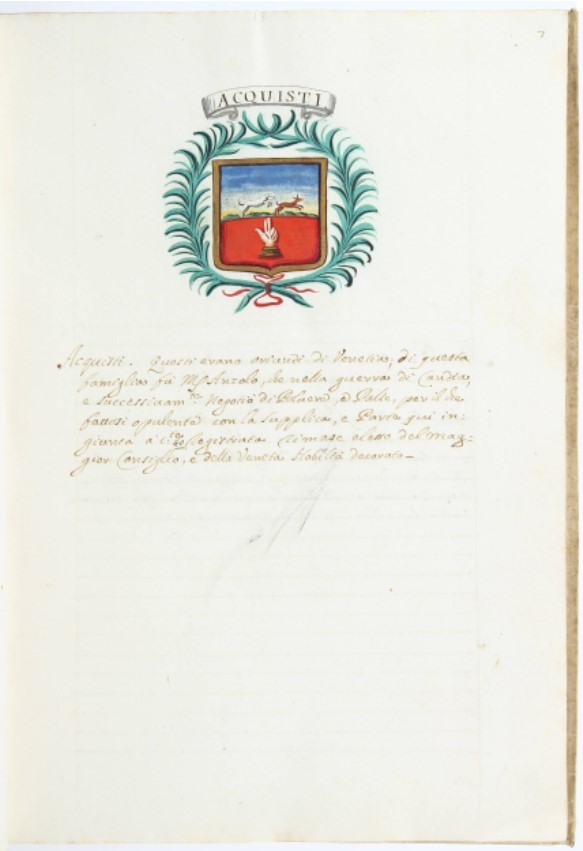 7
ACQUISTI
Acquisti. Questi erano oriundi di Venetia; di questa
famiglia fù Mr Anzolo, che nella guerra di Candia,
e successivam.te Negotiò di Polvere, e Balle, per il che
fattosi opulente con la supplica, e Parte qui in=
giunta à t.
registrata rimase eletto del Mag=
gior Consiglio, e della Veneta Nobiltà decorato